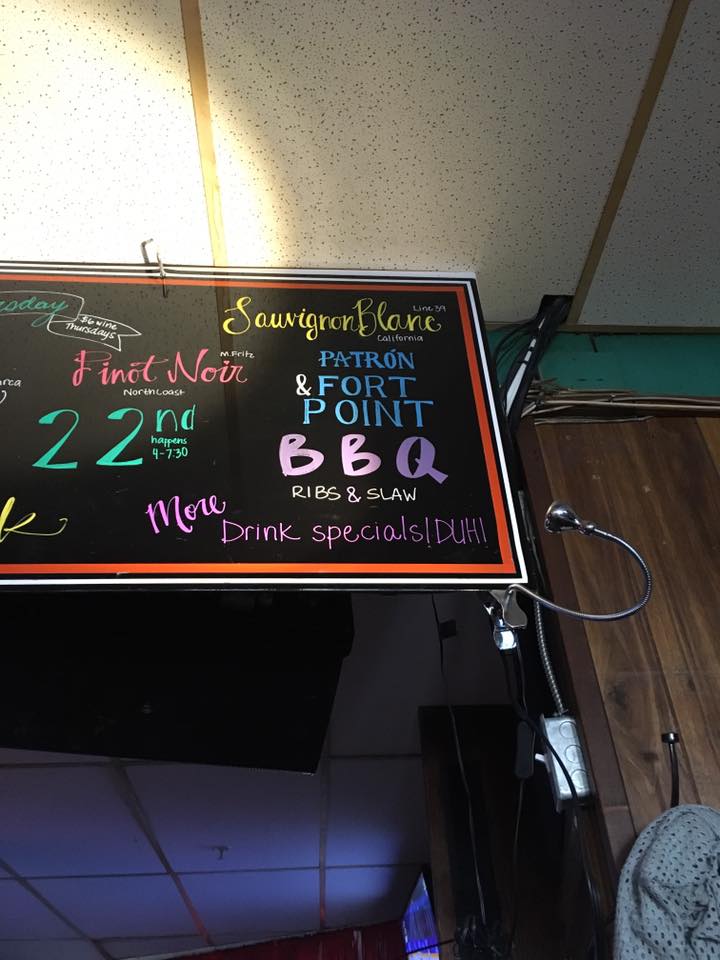 $6 wine
Thursdays
Sauvignon Blanc
Line 39
California
Pinot Noir
M.Fritz
North Coast
PATRÓN
& FORT
POINT
22nd
happens
4-7:30
BBQ
RIBS & SLAW
More
Drink specials! DUH!